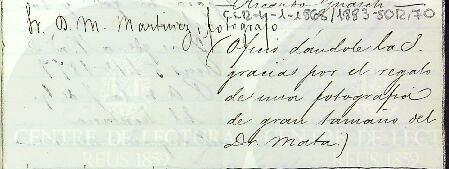 CLR-4-1-1868/1883-5012,70
Sr. D. M. Martinez, fotografo
(Oficio dándole la S.
gracias por el regalo
de una fotografia
de gran tamaño del
Dr. Mata.)
CENTRE DE LECTURA
REUS 1859